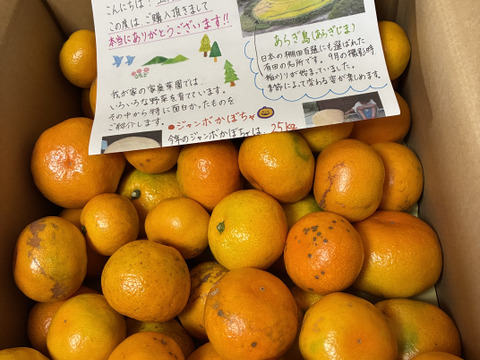 この度は、ご購入頂きまして
本当にありがとうございます!!
我が家の家庭菜園では、
いろいろな野菜を育てています。
その中から特に面白かったものを
ご紹介します。
あらぎ島(あらぎじま)
日本の棚田百選にも選ばれた
有田の名所です。9月の撮影時、
稲刈りが始まっていました。
季節によって変わる姿が楽しめます。
●ジャンボかぼちゃ
今年のジャンボかぼちゃは、25kg